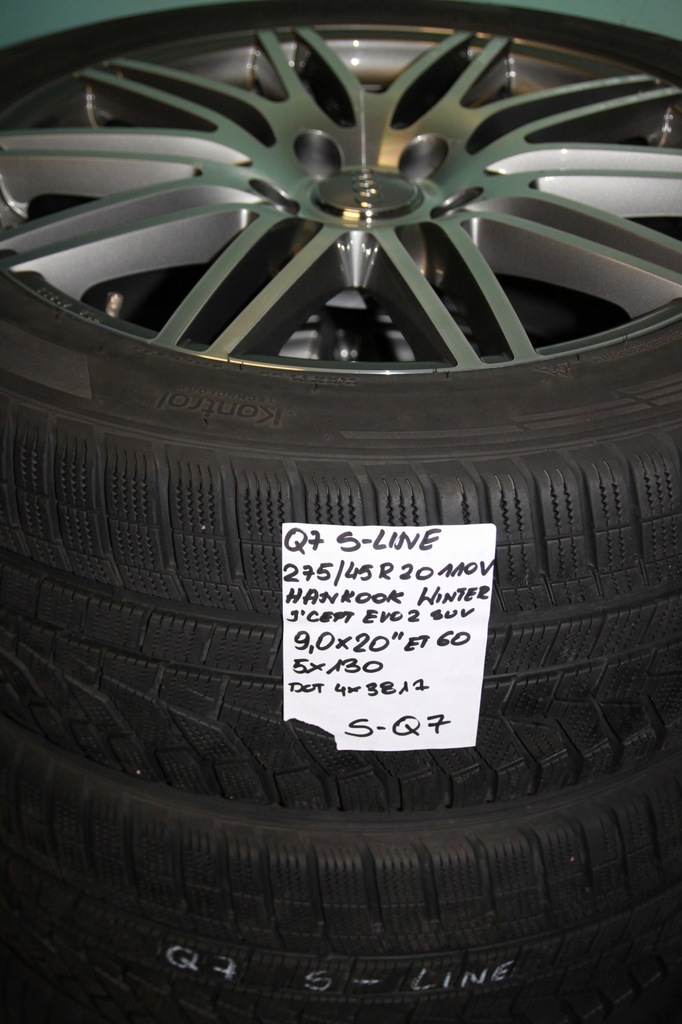 Kontrol
TECHNOLOGY
Q7 S-LINE
275/45 R 20 110V
HANKOOK WINTER
I*CEPT EVO2 SUV
9,0x20" ET 60
5x130
DOT 4x3817
S-Q7
Q7 S-LINE